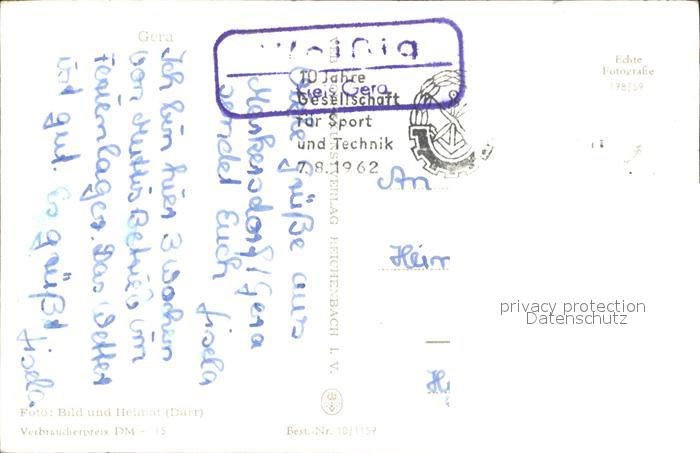 Gera
Weißig
Kreis Gera
10 Jahre
Gesellschaft
für Sport
und Technik
7.8.1962
Echte
Fotografie
178/59
Viele Grüße aus
Markersdorf/Gera
sendet Euch
Gisela
Ich bin hier 3 Wochen
von Muttis Betrieb im
Ferienlager. Das Wetter
ist gut. Es grüßt
Gisela
An
VERLAG REICHENBACH I. V.
privacy protection
Datenschutz
Foto: Bild und Heimat (Darr)
Verbraucherpreis DM - 15
Best.-Nr. 10/1159